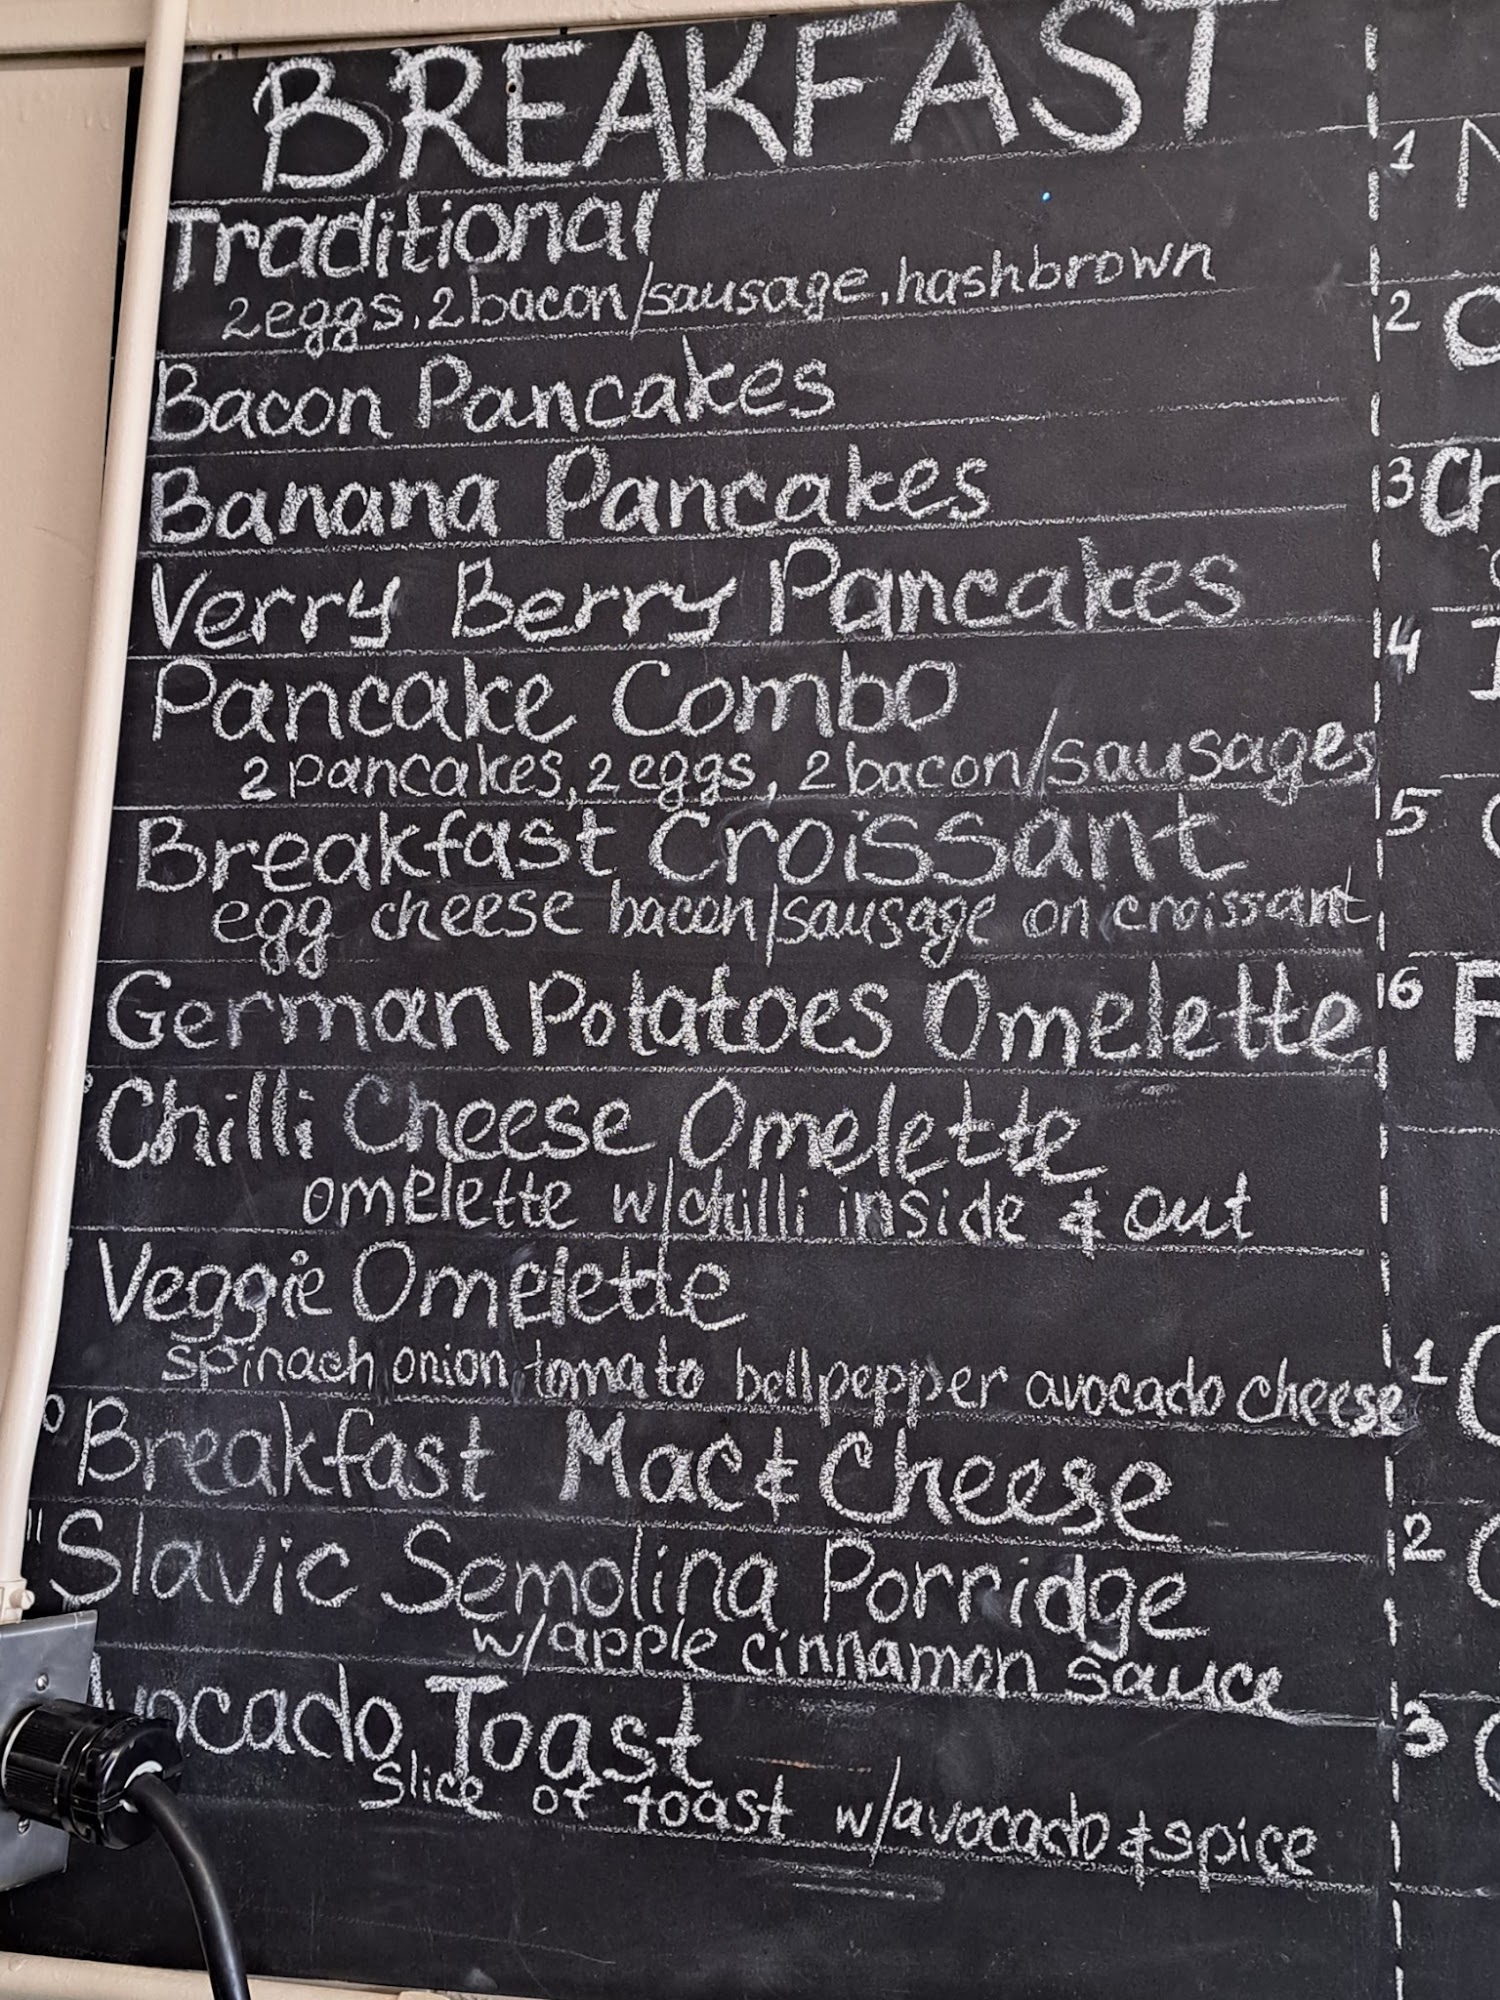 BREAKFAST
Traditional
2 eggs, 2 bacon/sausage, hashbrown
Bacon Pancakes
Banana Pancakes
Verry Berry Pancakes
Pancake Combo
2 pancakes, 2 eggs, 2 bacon/sausages
Breakfast Croissant
egg cheese bacon/sausage on croissant
German Potatoes Omelette
Chilli Cheese Omelette
omelette w/chilli inside & out
Veggie Omelette
spinach onion tomato bellpepper avocado cheese
Breakfast Mac & Cheese
11 Slavic Semolina Porridge
w/apple cinnamon sauce
Avocado Toast
Slice of toast w/avocado & spice
1
2
3
4
5
6
1
2
3